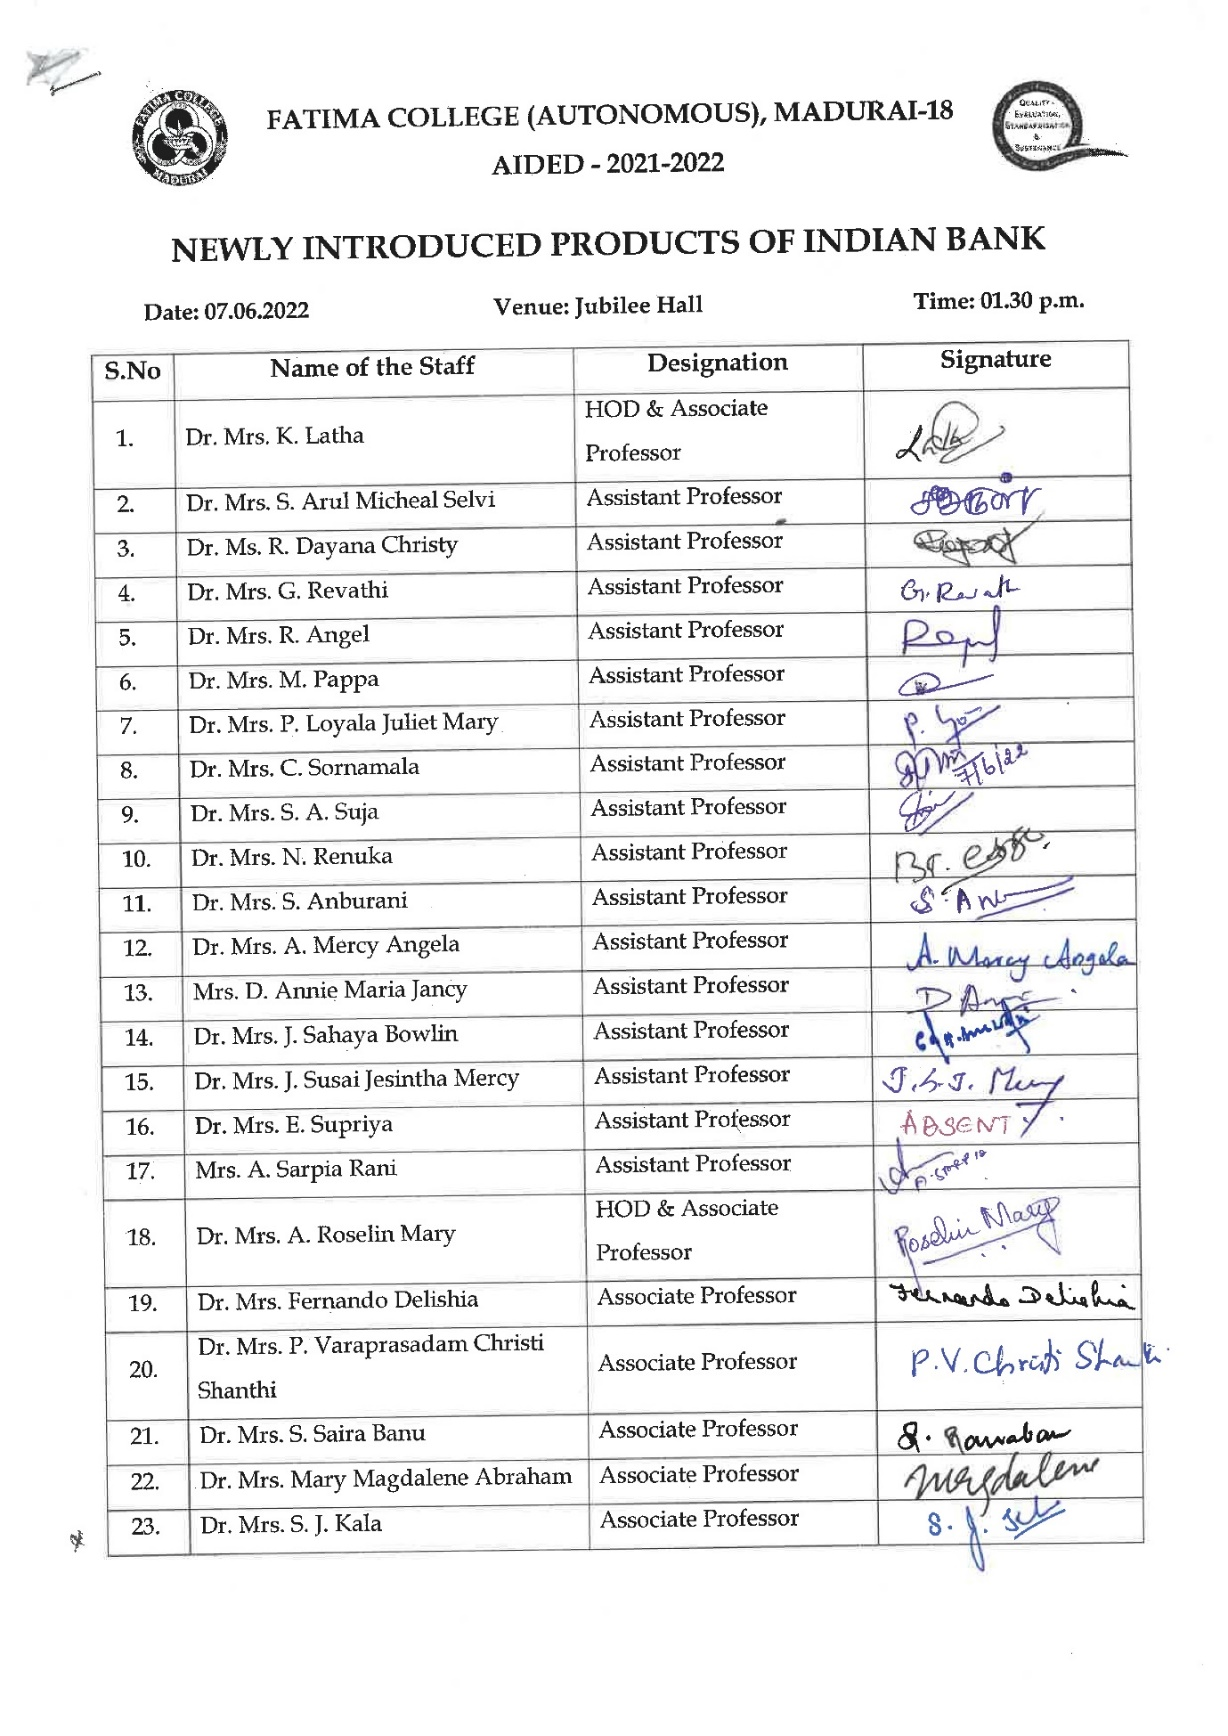 FATIMA COLLEGE
MADURAI
FATIMA COLLEGE (AUTONOMOUS), MADURAI-18
AIDED - 2021-2022
QUALITY -
EVALUATION,
STANDARDISATION
&
SUSTENANCE
NEWLY INTRODUCED PRODUCTS OF INDIAN BANK
Date: 07.06.2022 Venue: Jubilee Hall Time: 01.30 p.m.
S.No Name of the Staff Designation Signature
1. Dr. Mrs. K. Latha HOD & Associate
Professor
2. Dr. Mrs. S. Arul Micheal Selvi Assistant Professor
3. Dr. Ms. R. Dayana Christy Assistant Professor
4. Dr. Mrs. G. Revathi Assistant Professor
5. Dr. Mrs. R. Angel Assistant Professor
6. Dr. Mrs. M. Pappa Assistant Professor
7. Dr. Mrs. P. Loyala Juliet Mary Assistant Professor
8. Dr. Mrs. C. Sornamala Assistant Professor 7/6/22
9. Dr. Mrs. S. A. Suja Assistant Professor
10. Dr. Mrs. N. Renuka Assistant Professor
11. Dr. Mrs. S. Anburani Assistant Professor
12. Dr. Mrs. A. Mercy Angela Assistant Professor A. Mercy Angela
13. Mrs. D. Annie Maria Jancy Assistant Professor
14. Dr. Mrs. J. Sahaya Bowlin Assistant Professor
15. Dr. Mrs. J. Susai Jesintha Mercy Assistant Professor J.S.J. Mercy
16. Dr. Mrs. E. Supriya Assistant Professor ABSENT
17. Mrs. A. Sarpia Rani Assistant Professor
18. Dr. Mrs. A. Roselin Mary HOD & Associate
Professor Roselin Mary
19. Dr. Mrs. Fernando Delishia Associate Professor Fernando Delishia
20. Dr. Mrs. P. Varaprasadam Christi
Shanthi Associate Professor P.V. Christi Shanthi
21. Dr. Mrs. S. Saira Banu Associate Professor
22. Dr. Mrs. Mary Magdalene Abraham Associate Professor Magdalene
23. Dr. Mrs. S. J. Kala Associate Professor S. J.